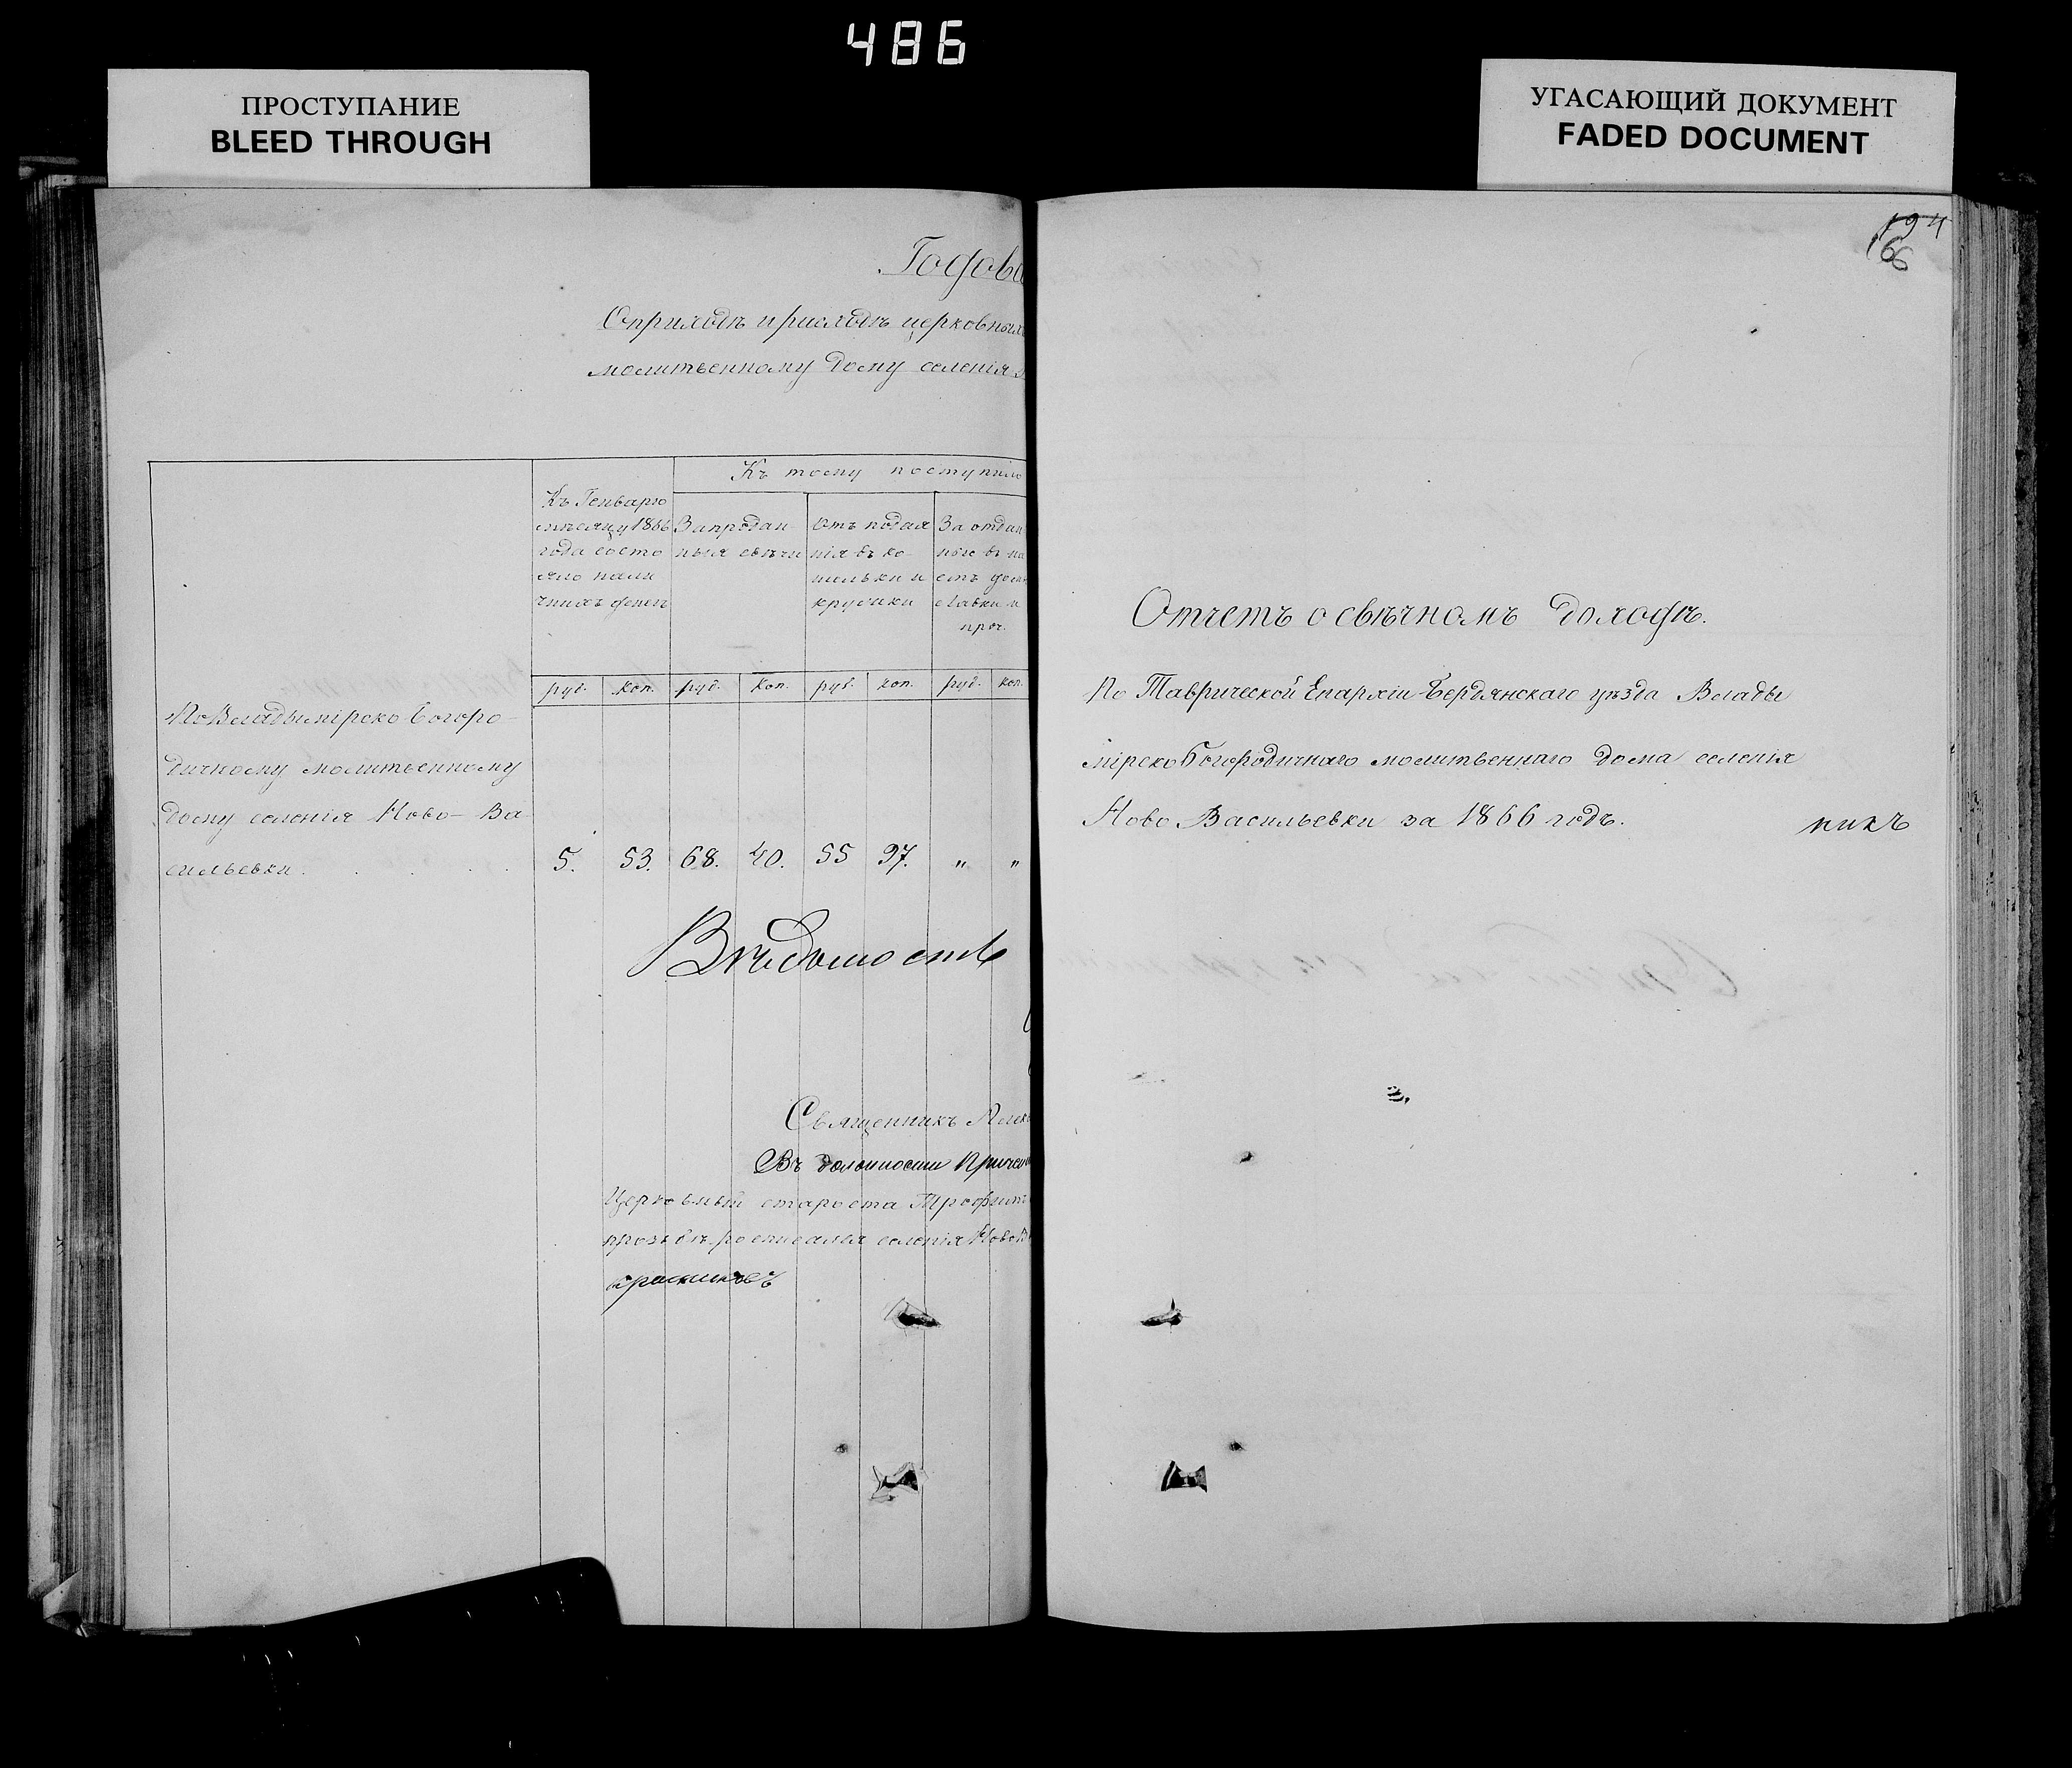 486
ПРОСТУПАНИЕ
BLEED THROUGH
УГАСАЮЩИЙ ДОКУМЕНТ
FADED DOCUMENT
Годова
О приходѣ и расходѣ церковныхъ
молитвенному дому селенія
Къ тому поступило
Къ Генварю
мѣсяцу 1866
года состо
яло нали
чныхъ денегъ
За продан
ныя свѣчи
Отъ подая
нія въ ко
шельки и
кружки
За отдан
ные въ на
емъ дома
лавки и
проч.
руб. коп. руб. коп. руб. коп. руб. коп.
По Владимірско-Богоро-
дичному молитвенному
дому селенія Ново-Ва
сильевки . . . . . 5. 53. 68. 40. 55 97. „ „
Вѣдомость
Священникъ Алек
Въ должности Приче
Церковный староста Трофим
росписался селенія Ново В
194
166
Отчетъ о свѣчномъ доходѣ.
По Таврической Епархіи Бердянскаго уѣзда Влади
мірско Богородичнаго молитвеннаго дома селенія
Ново Васильевки за 1866 годъ.
никъ